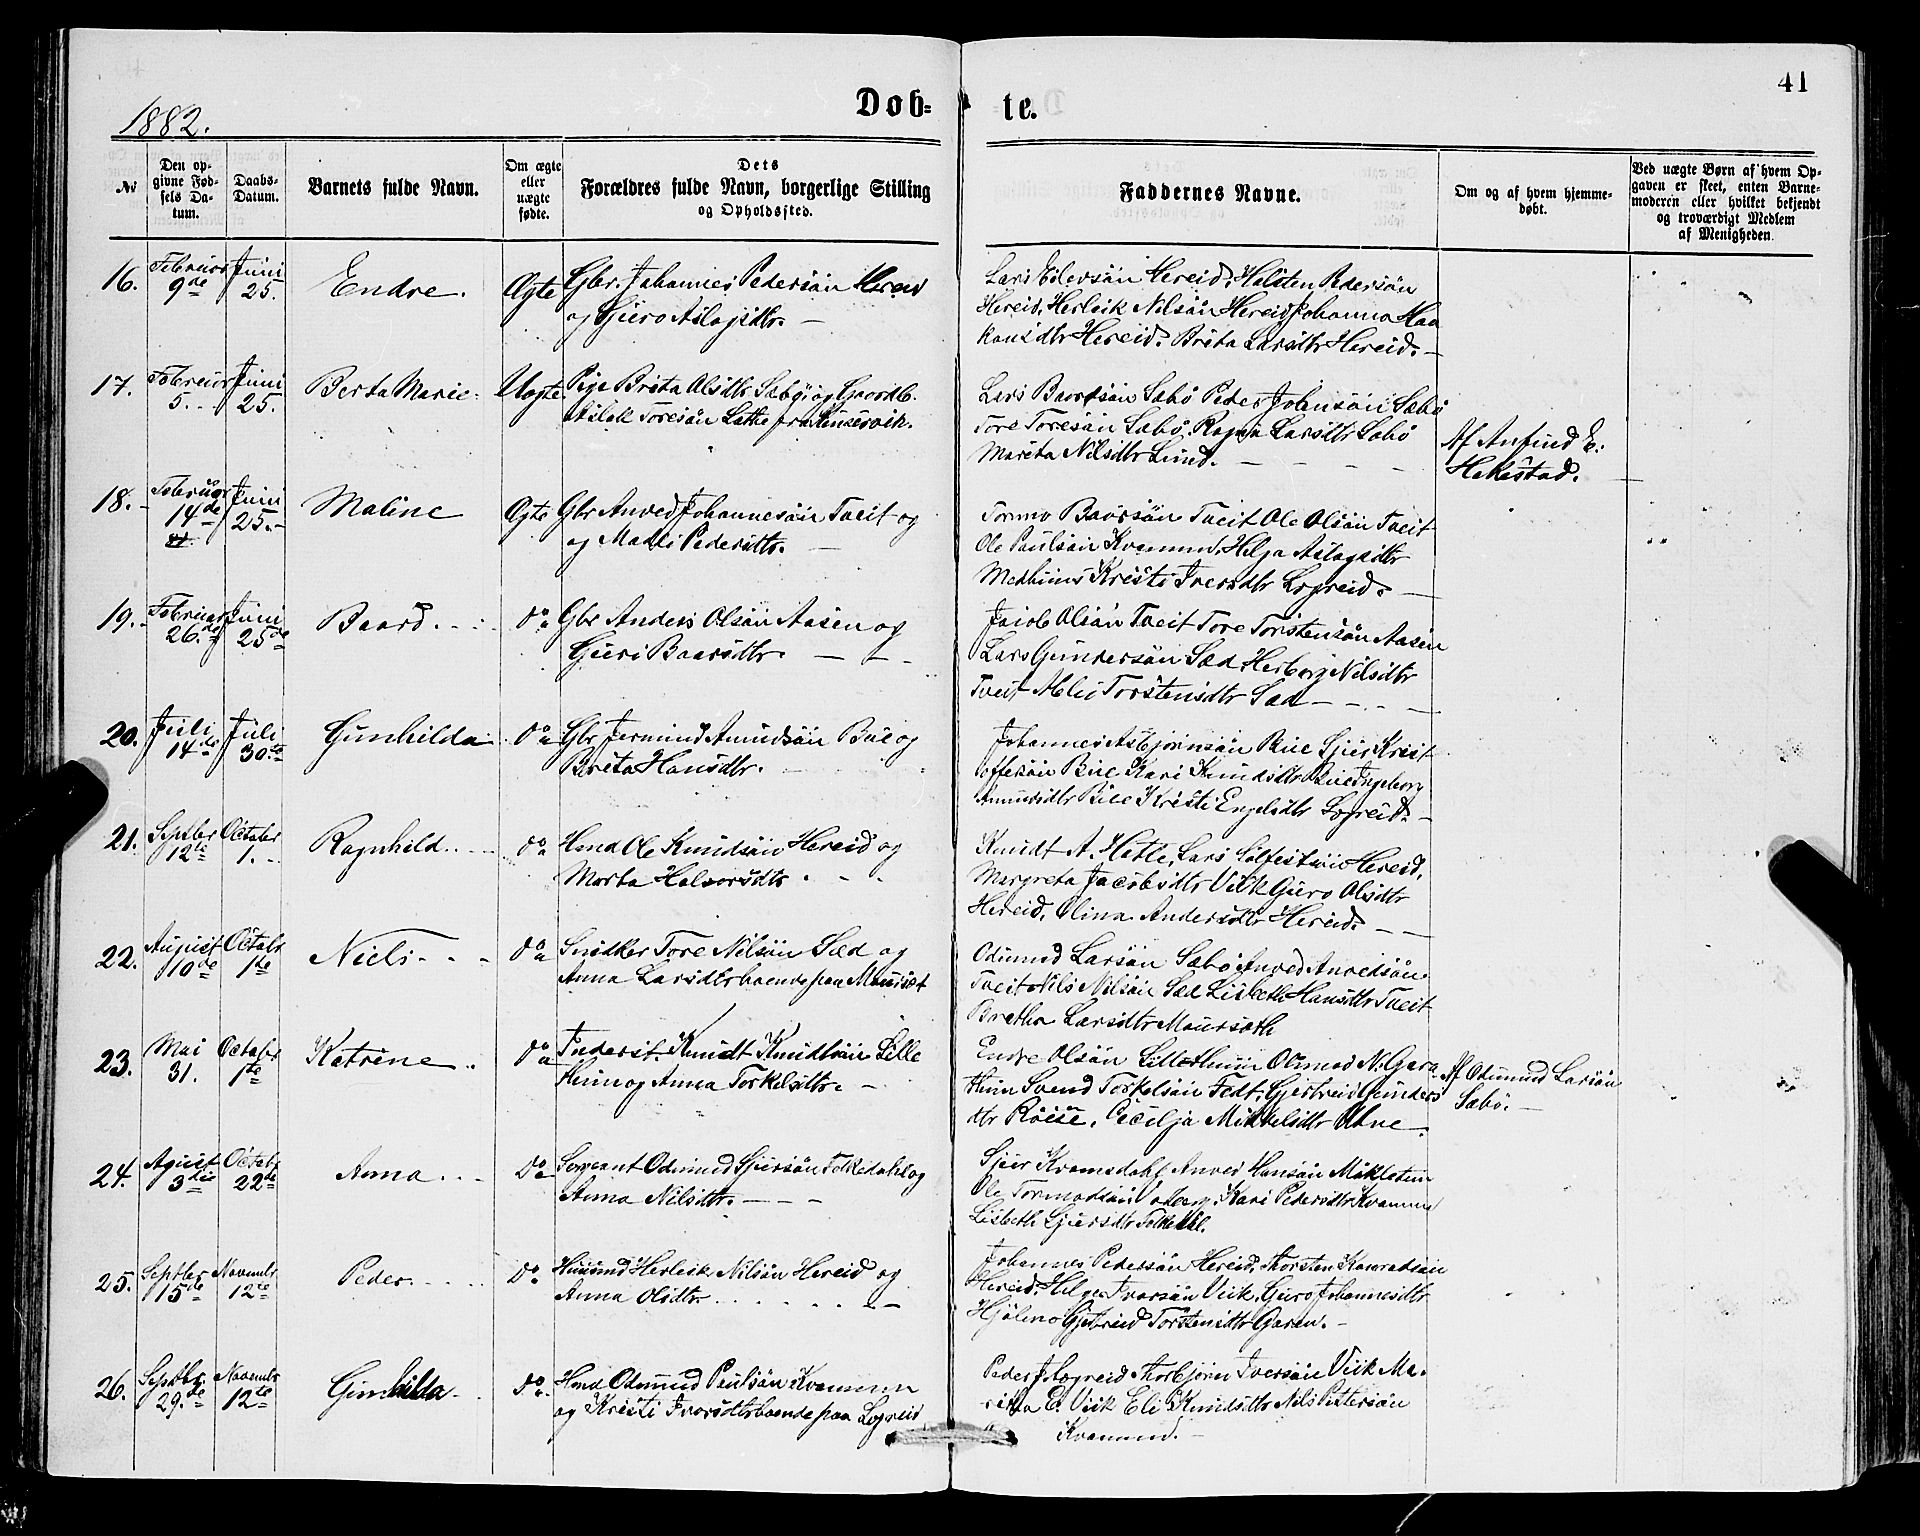 41
1882.
Døb-te.
No
Den opgivne Fødsels Datum.
Daabs-Datum.
Barnets fulde Navn.
Om ægte eller uægte fødte.
Dets Forældres fulde Navn, borgerlige Stilling og Opholdssted.
Faddernes Navne.
Om og af hvem hjemmedøbt.
Ved uægte Børn af hvem Opgaven er skeet, enten Barnemoderen eller hvilket bekjendt og troværdigt Medlem af Menigheden.
16. Februar 9de Juni 25. Endre. Ægte Gbr. Johannes Pedersøn Hereid
og Guro Aslagsdtr.
Lars Eilevsøn Hereid, Halsten Pedersøn
Hereid, Herleik Nilsøn Hereid Johanna Haa
konsdtr Hereid. Brita Larsdtr Hereid.
17. Februar 5. Juni 25. Berta Marie. Uægte Pige Brita Olsdtr Sæbø og Gaardb.
Aslak Toresøn Lothe fra Kinservik.
Lars Baardsøn Sæbø Peder Johnsøn Sæbø
Tore Toresøn Sæbø. Ragna Larsdtr Sæbø
Marita Nilsdtr Lund.
Af Anfind E.
Hekestad.
18. Februar 14de Juni 25. Maline Ægte Gbr Anved Johannesøn Tveit og
og Madli Pedersdtr.
Tormo Baarsøn Tveit Ole Olsøn Tveit
Ole Paulsøn Kvammd. Helga Aslagsdtr
Medhuus Kristi Iversdtr Legreid.
19. Februar 26de Juni 25de Baard. Do Gbr Anders Olsøn Aasen og
Guri Baarsdtr.
Jacob Olsøn Tveit Tore Torstensøn Aasen
Lars Gundersøn Sæd, Herborg Nilsdtr
Tveit Torstensdtr Sæd
20. Juli 14de Juli 30te Gunhilda Do Gbr Jermund Amundsøn Bue og
Brita Hansdtr.
Johannes Asbjørnsøn Bue Sjur Krist
offersøn Bue Kari Knudsdtr Bue Ingeborg
Amundsdtr Bue Kristi Engelsdtr Legreid.
21. Septbr 12te October 1. Ragnhild. Do Hmd Ole Knudsøn Hereid og
Marta Halvorsdtr
Knudt A. Hetle, Lars Solfestsøn Hereid,
Margreta Jacobsdtr Viik Guro Olsdtr
Hereid, Olina Andersdtr Hereid.
22. August 10de Octobr 1te Niels Do Snidker Tore Nilsøn Sæd og
Anna Larsdtr boende paa Maursæt
Odmund Larsøn Sæbø Anved Anvedsøn
Tveit Nils Nilsøn Sæd Lisbeth Hansdtr Tveit
Bretha Larsdtr Maursæth
23. Mai 31. Octobr 1te Katrine. Do Inderst Knudt Knudtsøn Lille
Huim og Anna Torkelsdtr.
Endre Olsøn Lillethuim Odmod N. Gara
thun Svend Torkelsøn Fedt, Gjertreid Gunders
dtr Røise, Cecilja Mikkelsdtr Uhne.
Af Odmund Larsøn
Sæbø.
24. Agust 3die Octobr 22de Anna Do Sergeant Odmund Sjursøn Folkedahl og
Anna Nilsdtr.
Sjur Kvamsdahl Anved Hansøn Mikletun
Ole Tormodsøn Vatne, Kari Pedersdtr Kvammd
Lisbeth Sjursdtr Folkedal.
25. Septbr 15de Novembr 12te Peder. Do Huusmd Herleik Nilsøn Hereid og
Anna Olsdtr.
Johannes Pedersøn Hereid, Thorsten Konradsøn
Hereid, Helge Ivarsøn Viik, Guro Johannesdtr
Hjølmo Gjetreid Torstensdtr Garen.
26. Septbr 29de Novembr 12te Gunhilda Do Hmd Odmund Paulsøn Kvammen
og Kristi Ivarsdtr boende paa Legreid
Peder J Legreid Thorbjørn Iversøn Viik Ma-
ritha E. Viik Eli Knudsdtr Nils Pittersøn
Kvammd.